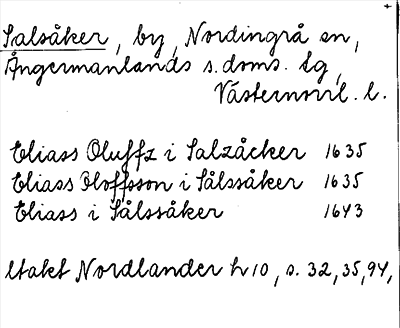 Salsåker, by, Nordingrå sn,
Ångermanlands s.doms. tg,
Västernorrl. l.
Eliass Oluffz i Salzåcker 1635
Eliass Oloffsson i Sålssåker 1635
Eliass i Sålssåker 1643
Utakt Nordlander h 10, s. 32, 35, 94,